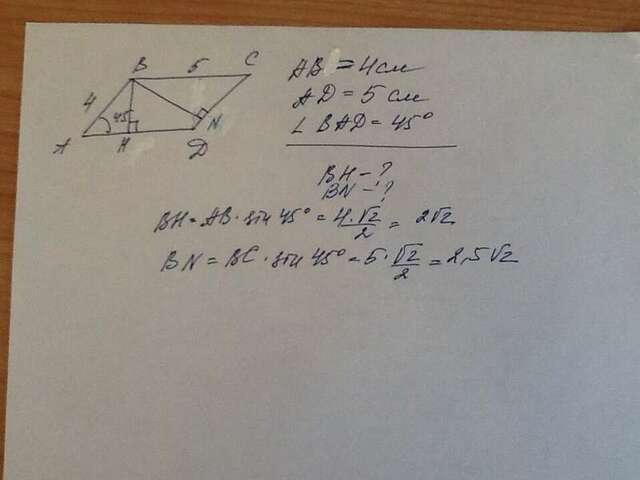 B 5 C
4 45
A H D N
AB = 4см
AD = 5 см
∠ BAD = 45°
BH - ?
BN - ?
BH = AB · sin 45° = 4·√2/2 = 2√2
BN = BC · sin 45° = 5·√2/2 = 2,5√2